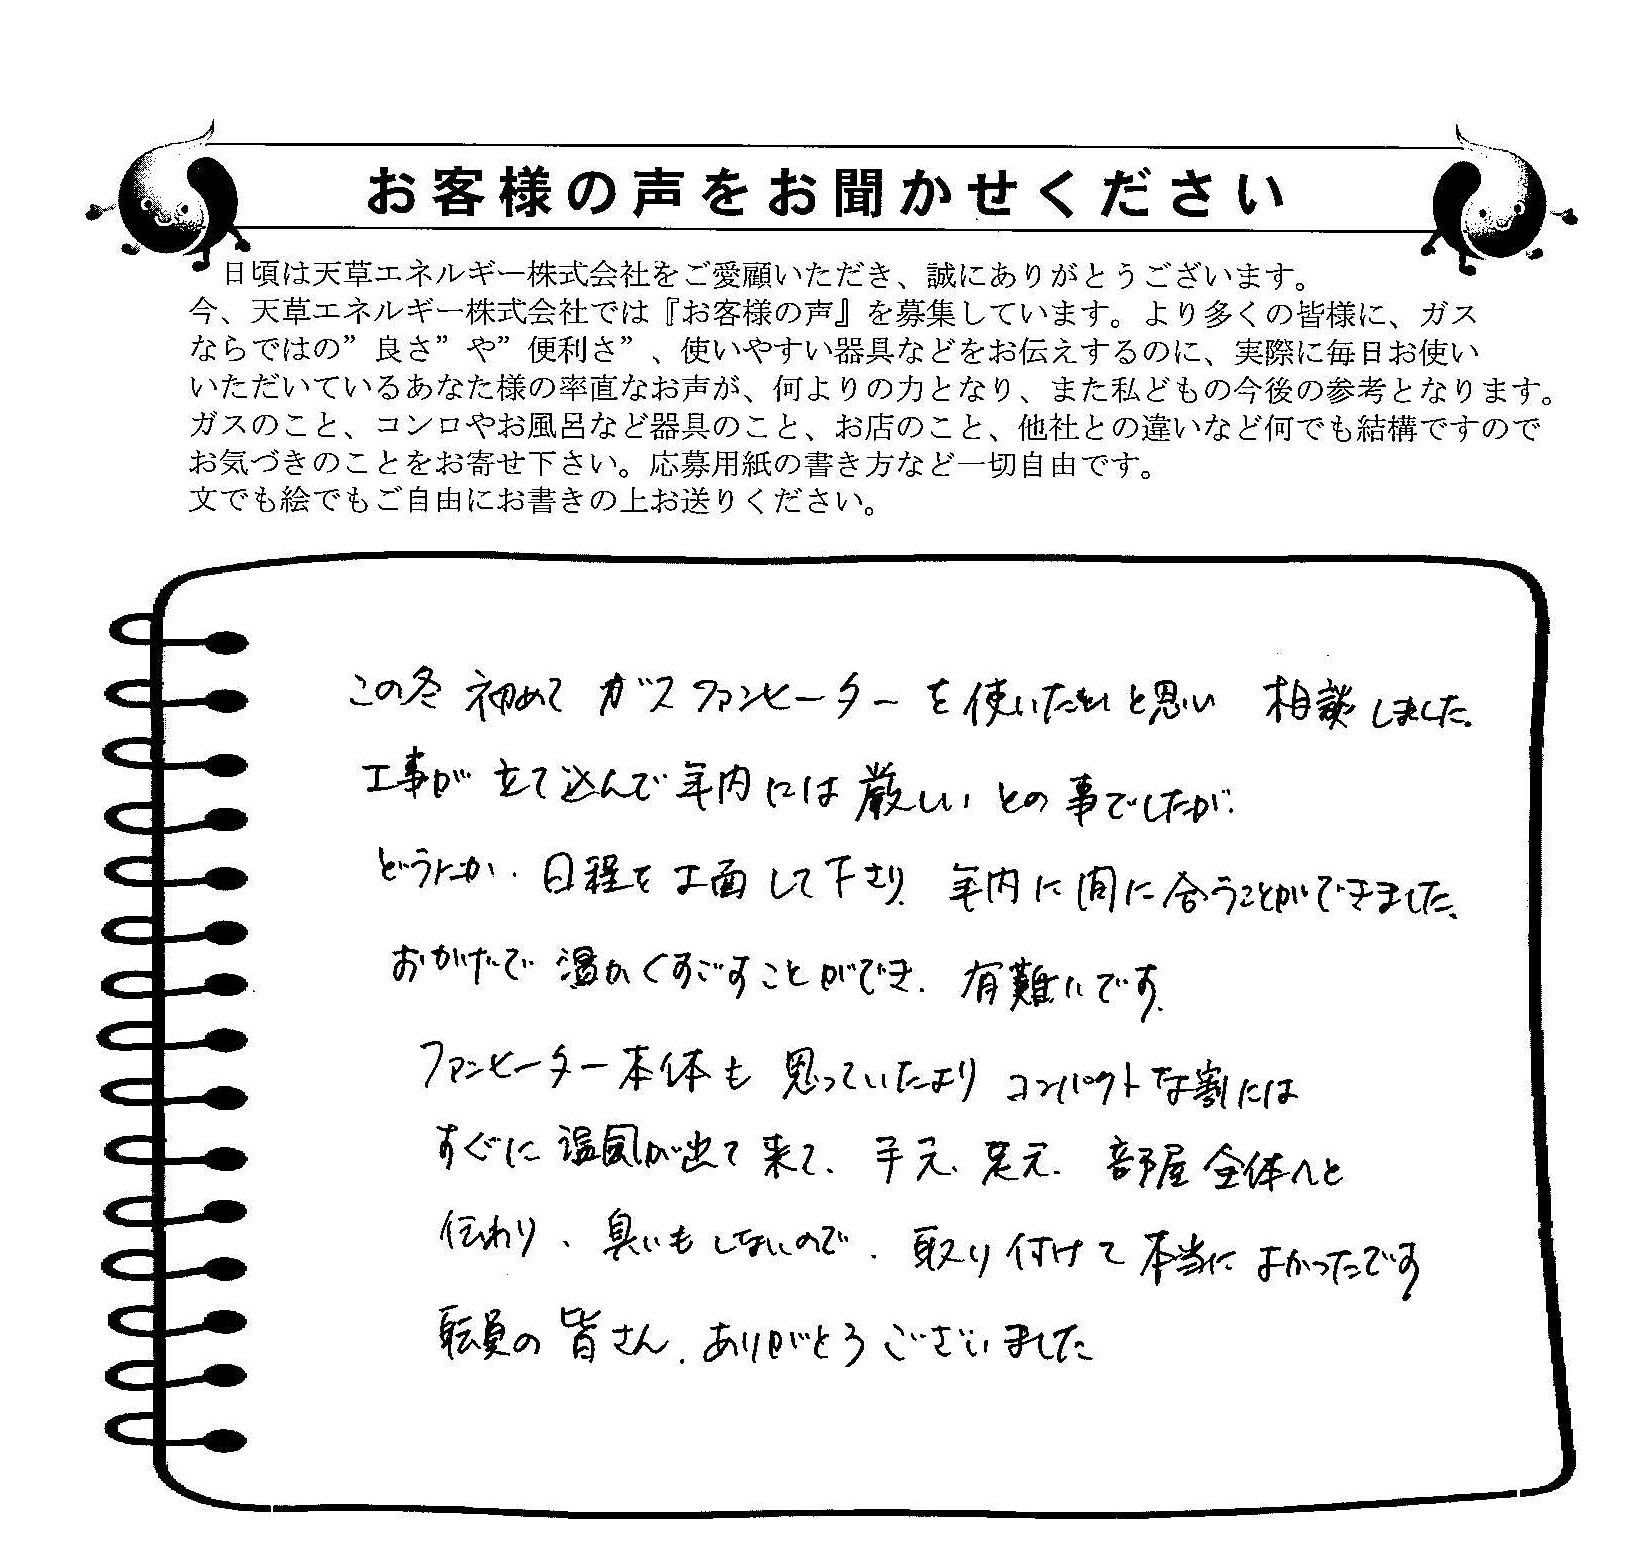 お客様の声をお聞かせください
日頃は天草エネルギー株式会社をご愛顧いただき、誠にありがとうございます。
今、天草エネルギー株式会社では『お客様の声』を募集しています。より多くの皆様に、ガス
ならではの”良さ”や”便利さ”、使いやすい器具などをお伝えするのに、実際に毎日お使い
いただいているあなた様の率直なお声が、何よりの力となり、また私どもの今後の参考となります。
ガスのこと、コンロやお風呂など器具のこと、お店のこと、他社との違いなど何でも結構ですので
お気づきのことをお寄せ下さい。応募用紙の書き方など一切自由です。
文でも絵でもご自由にお書きの上お送りください。
この冬 初めて ガスファンヒーターを と思い 相談しました。
工事が 立て込んで年内には厳しい との事でしたが、
どうにか、日程を工面して下さり、年内に間に合うことができました。
おかげで 温かくすごすことができ、有難いです。
ファンヒーター本体も 思っていたより コンパクトな割には
すぐに 温風が出て来て、手元、足元、部屋全体へと
伝わり、臭いもしないので、取り付けて本当に よかったです
職員の皆さん、ありがとうございました